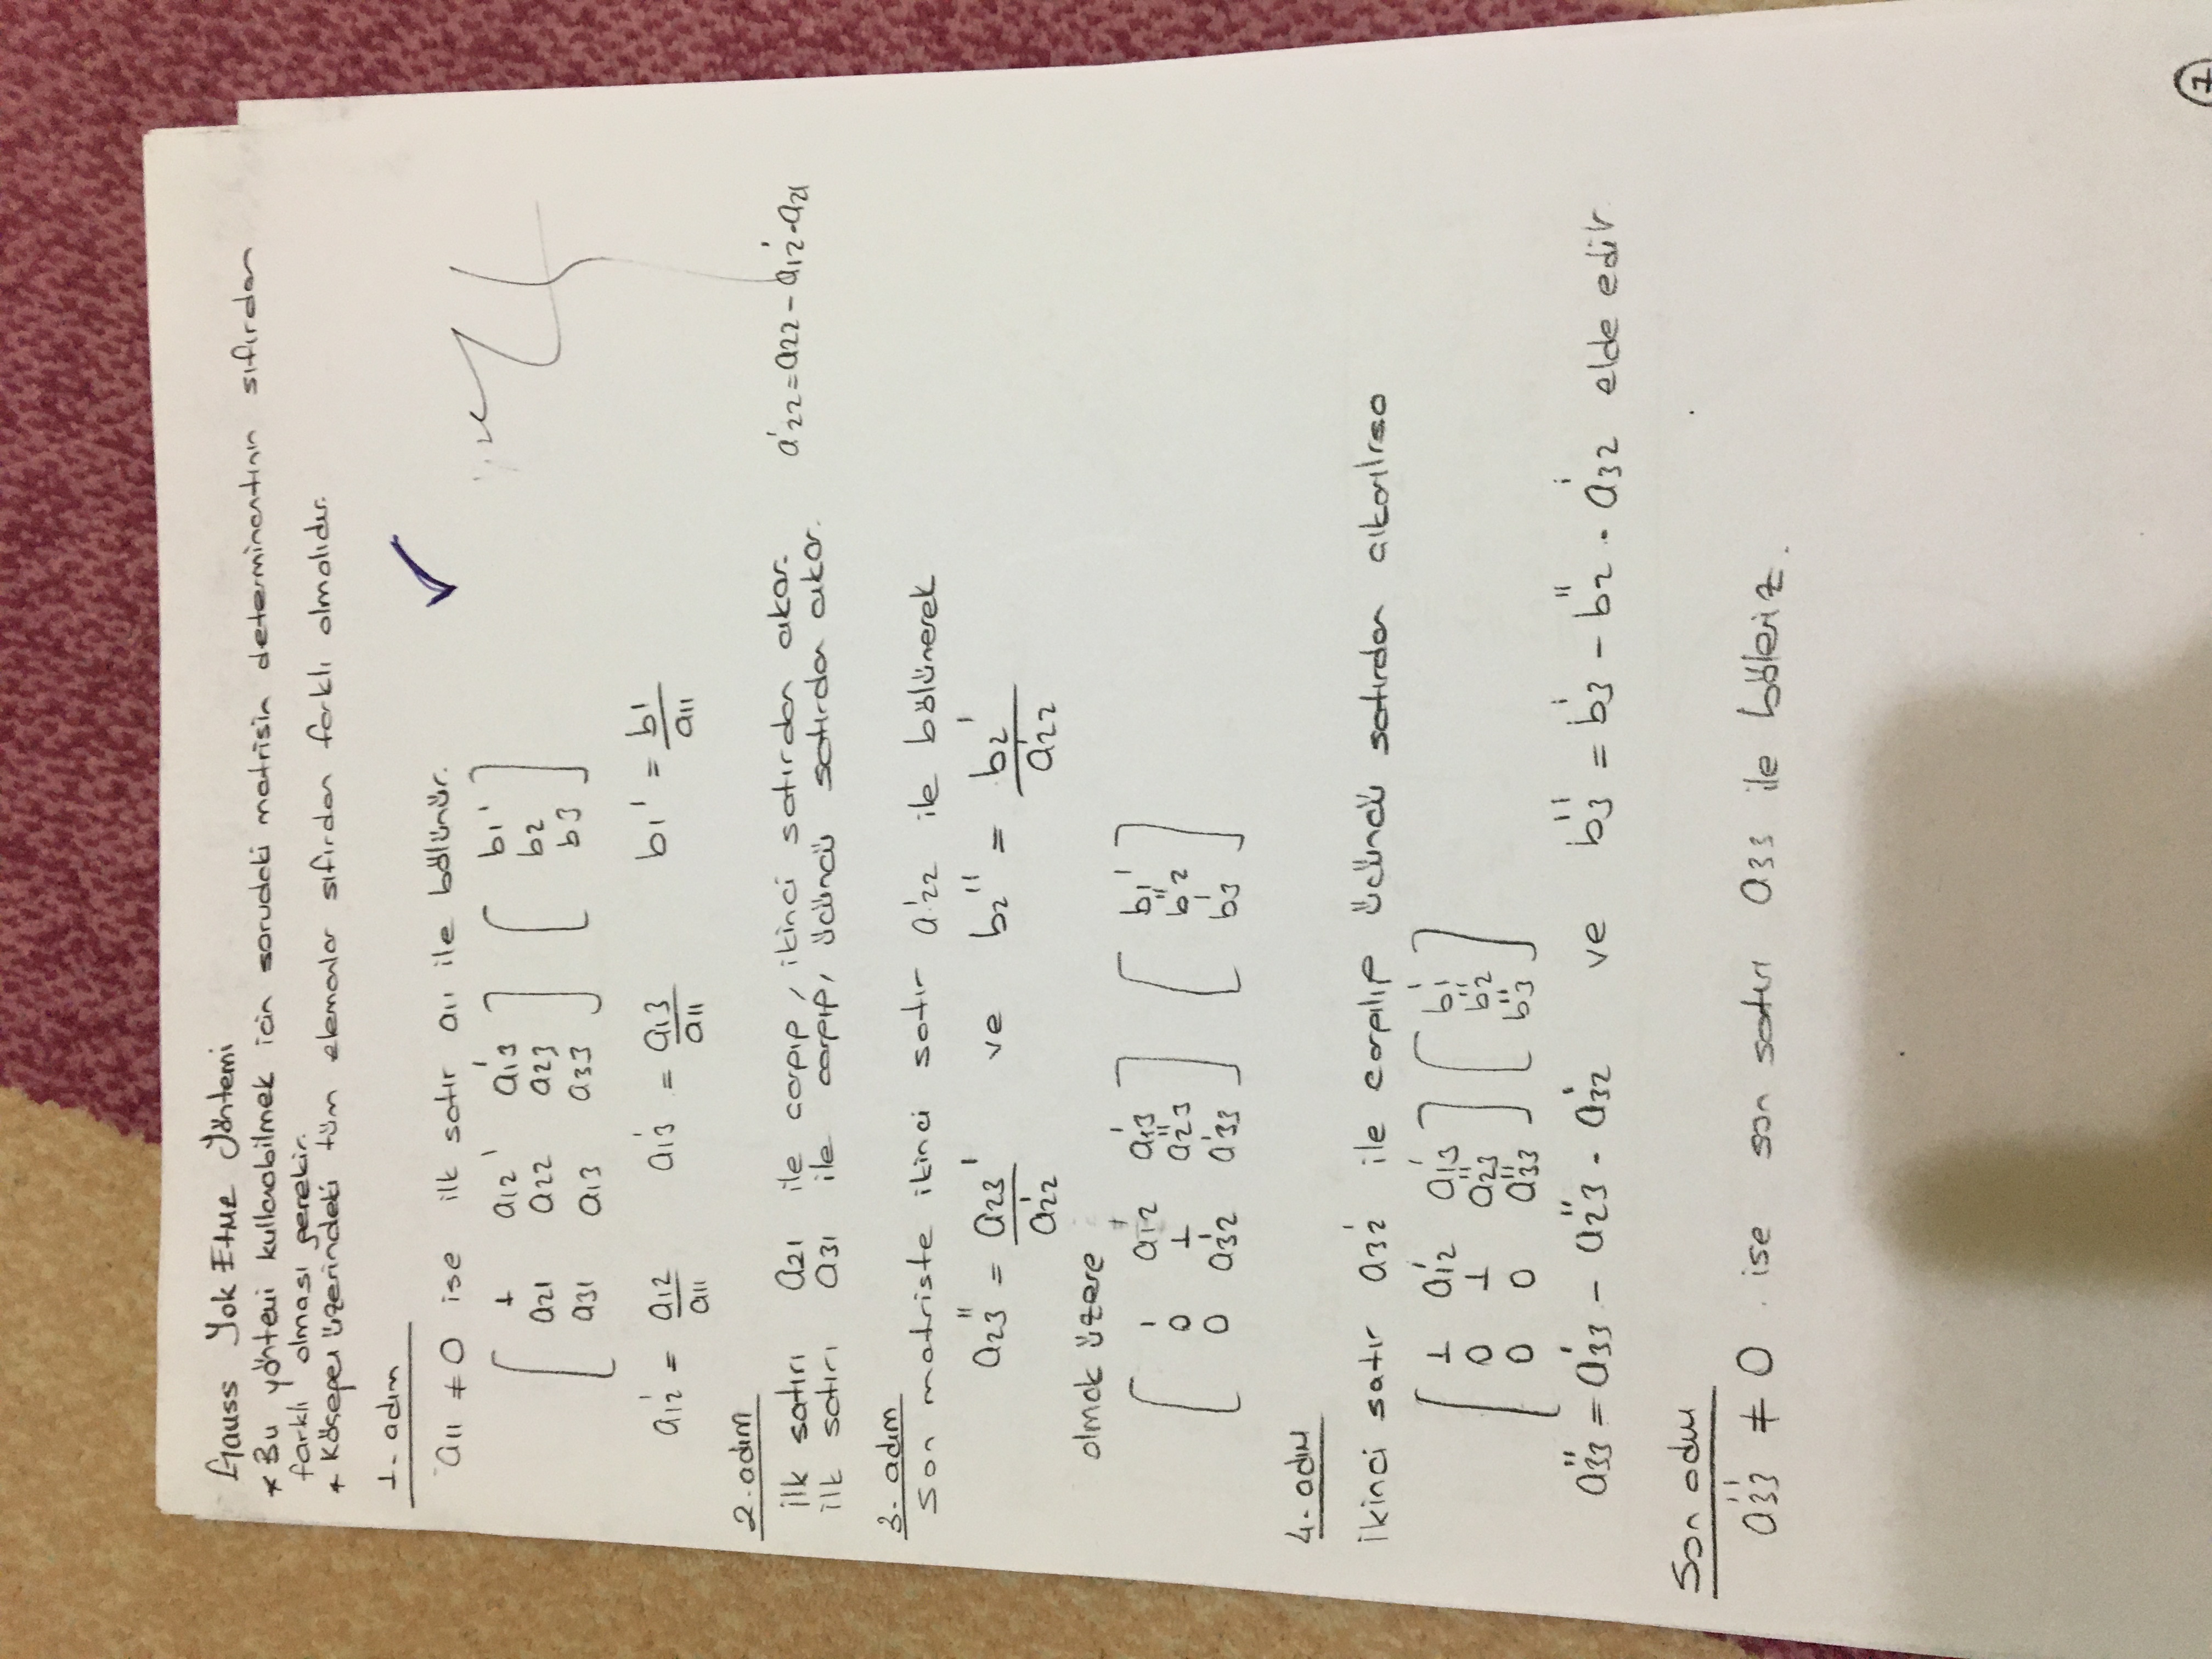 Gauss Yok Etme Yöntemi
* Bu yöntemi kullanabilmek icin sorudaki matrisin determinantının sıfırdan
farklı olması gerekir.
* Köşegen üzerindeki tüm elemanlar sıfırdan farklı olmalıdır.
1. adım
a11 ≠ 0 ise ilk satır a11 ile bölünür. ✓
[ 1 a12' a13' ] [ b1' ]
[ a21 a22 a23 ] [ b2 ]
[ a31 a13 a33 ] [ b3 ]
a12' = a12/a11 a13' = a13/a11 b1' = b1/a11
2. adım
ilk satırı a21 ile carpıp, ikinci satırdan cıkar. a'22 = a22 - a12' . a21
ilk satırı a31 ile carpıp, ücüncü satırdan cıkar.
3. adım
Son matriste ikinci satır a'22 ile bölünerek
a23'' = a23'/a22' ve b2'' = b2'/a22'
olmak üzere
[ 1 a12' a13' ] [ b1' ]
[ 0 1 a23'' ] [ b2'' ]
[ 0 a32' a33' ] [ b3' ]
4. adım
ikinci satır a32' ile carpılıp ücüncü satırdan cıkarılrsa
[ 1 a12' a13' ] [ b1' ]
[ 0 1 a23'' ] [ b2'' ]
[ 0 0 a33'' ] [ b3'' ]
a33'' = a33' - a23'' . a32' ve b3'' = b3' - b2'' . a32' elde edilr
Son adım
a33'' ≠ 0 ise son satırı a33 ile böleriz.
7